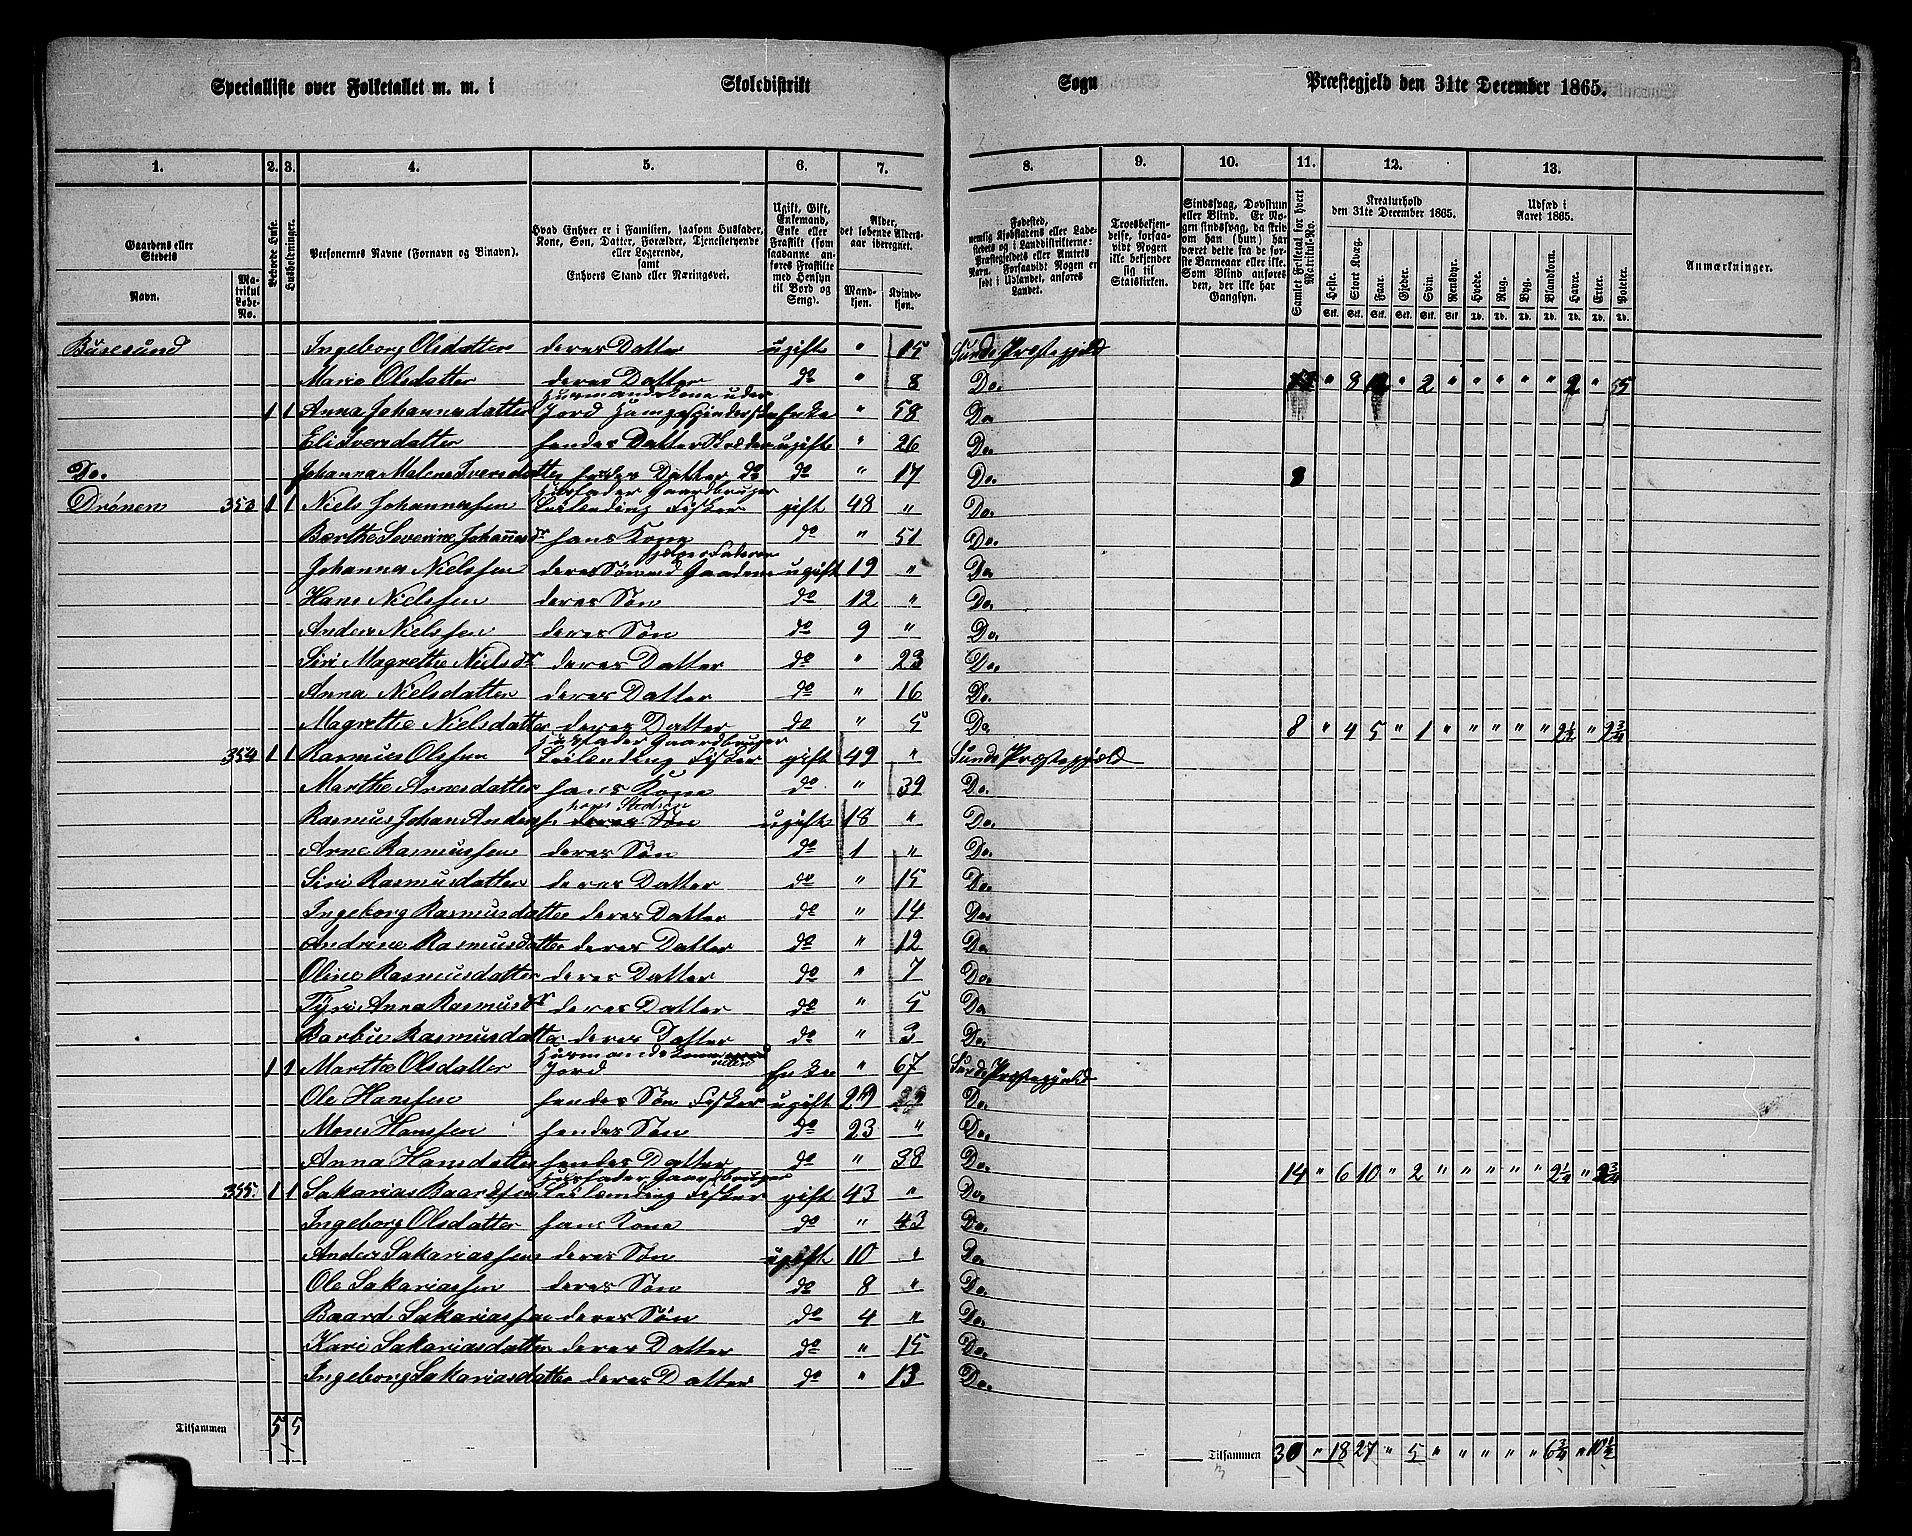 Specialliste over Folketallet m. m. i Skoledistrikt Sogn Præstegjeld den 31te December 1865.
1. 2. 3. 4. 5. 6. 7. 8. 9. 10. 11. 12. 13.
Gaardens eller Stedets Navn.
Matrikul Løbe-No.
Beboede Huse.
Husholdninger.
Personernes Navne (Fornavn og Binavn).
Hvad Enhver er i Familien, saasom Husfader, Kone, Søn, Datter, Forældre, Tjenestetyende eller Logerende, samt Enhvers Stand eller Næringsvei.
Ugift, Gift, Enkemand, Enke eller Fraskilt (som saadanne anføres Fraskilte med Hensyn til Bord og Seng).
Alder, det løbende Aldersaar iberegnet.
Mandkjøn. Kvindekjøn.
Fødested, nemlig Kjøbstadens eller Ladestedets og i Landdistrikterne: Præstegjeldets eller Amtets Navn. Forsaavidt Nogen er født i Udlandet, anføres Landet.
Troesbekjendelse, forsaavidt Nogen ikke bekjender sig til Statskirken.
Sindssvag, Døvstum eller Blind. Er Nogen sindssvag, da skriv om han (hun) har været dette fra de første Barneaar eller ikke. Som Blind anføres den, der ikke har Gangsyn.
Samlet Folketal for hvert Matrikul-No.
Kreaturhold den 31te December 1865.
Heste. Stort Kvæg. Faar. Gjeder. Sviin. Rensdyr.
Udsæd i Aaret 1865.
Hvede. Rug. Byg. Blandkorn. Havre. Erter. Poteter.
Stk. Stk. Stk. Stk. Stk. Stk. Td. Td. Td. Td. Td. Td. Td.
Anmærkninger.
Buresund Ingeborg Olsdatter deres Datter ugift " 15 Sunds Præstegjeld
Marie Olsdatter deres Datter do " 8 Do. " 8 " 2 " " " " " 2 " 55
Huusmandskone uden
1 1 Anna Johannesdatter Jord Enke " 58 Do
Eli Iversdatter hendes Datter ugift " 26 Do.
Do. Johanna Malene Iversdatter hendes Datter do do " 17 Do.
Huusfader Gaardbruger
Drönen 353 1 1 Niels Johannessen Leilænding Fisker gift 48 " Do.
Berthe Severine Johannesdr hans Kone do " 51 Do.
Johannes Nielssen deres Søn ugift 19 " Do
Hans Nielssen deres Søn do 12 " Do.
Anders Nielssen deres Søn do 9 " Do.
Siri Magrethe Nielsdr deres Datter do " 23 Do.
Anna Nielsdatter deres Datter do " 16 Do.
Magrethe Nielsdatter deres Datter do " 5 Do 8 " 4 5 " 1 " " " " " 2½ " 2¾
Huusfader Gaardbruger
354 1 1 Rasmus Olssen Leilænding Fisker gift 49 " Sunds Præstegjeld
Marthe Arnesdatter hans Kone do " 39 Do.
hans Stedsøn
Rasmus Johan Anderss. deres Søn ugift 18 " Do.
Arne Rasmussen deres Søn do 1 " Do.
Siri Rasmusdatter deres Datter do " 15 Do.
Ingeborg Rasmusdatter deres Datter do " 14 Do.
Andrine Rasmusdatter deres Datter do " 12 Do
Oline Rasmusdatter deres Datter do " 7 Do.
Tyri Anna Rasmusdr deres Datter do " 5 Do
Barbro Rasmusdatter deres Datter do " 3 Do.
Huusmandskone uden
1 1 Marthe Olsdatter Jord Enke " 67 Sunds Præstegjeld
Ole Hanssen hendes Søn Fisker ugift 29 Do.
Mons Hanssen hendes Søn do 23 " Do.
Anna Hansdatter hendes Datter do " 38 Do. 14 " 6 10 " 2 " " " " " 2¼ "
Huusfader Gaardbruger
355. 1 1 Sakarias Baardsen Leilænding Fisker gift 43 " Do.
Ingeborg Olsdatter hans Kone do " 43 Do.
Anders Sakariassen deres Søn ugift 10 " Do.
Ole Sakariassen deres Søn do 8 " Do.
Baard Sakariassen deres Søn do 4 " Do.
Kari Sakariasdatter deres Datter do " 15 Do.
Ingeborg Sakariasdatter deres Datter do " 13 Do.
Tilsammen 5 5 Tilsammen 30 " 18 27 " 5 " " " " " 6¾ " 10½